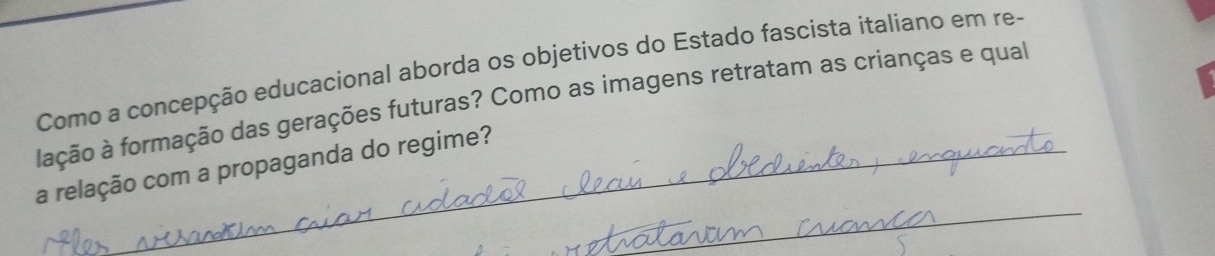 Como a concepção educacional aborda os objetivos do Estado fascista italiano em re-
lação à formação das gerações futuras? Como as imagens retratam as crianças e qual
a relação com a propaganda do regime?
criar cidadãos leais e obedientes, enquanto
retratavam criança